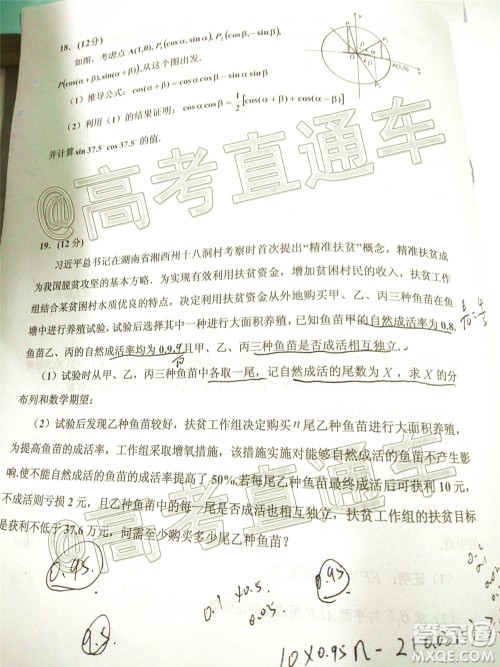 18. (12分)
如图，考虑点 A(1,0), P₁(cosα,sinα), P₂(cosβ,−sinβ),
P(cos(α+β),sin(α+β)),从这个图出发.
(1) 推导公式: cos(α+β)=cosαcosβ−sinαsinβ
(2) 利用 (1) 的结果证明: cosαcosβ=1/2[cos(α+β)+cos(α−β)]
并计算sin37.5°cos37.5°的值.
@高考直通车
19. (12分)
习近平总书记在湖南省湘西州十八洞村考察时首次提出“精准扶贫”概念，精准扶贫成
为我国脱贫攻坚的基本方略．为实现有效利用扶贫资金，增加贫困村民的收入，扶贫工作
组结合某贫困村水质优良的特点，决定利用扶贫资金从外地购买甲、乙、丙三种鱼苗在鱼
塘中进行养殖试验，试验后选择其中一种进行大面积养殖，已知鱼苗甲的自然成活率为0.8.
鱼苗乙、丙的自然成活率均为0.9,且甲、乙、丙三种鱼苗是否成活相互独立.
9/10
4/5
(1) 试验时从甲、乙，丙三种鱼苗中各取一尾，记自然成活的尾数为X，求X的分
布列和数学期望；
(2) 试验后发现乙种鱼苗较好，扶贫工作组决定购买n尾乙种鱼苗进行大面积养殖，
为提高鱼苗的成活率，工作组采取增氧措施，该措施实施对能够自然成活的鱼苗不产生影
响.使不能自然成活的鱼苗的成活率提高了50%.若每尾乙种鱼苗最终成活后可获利10元，
不成活则亏损2元，且乙种鱼苗中的每一尾是否成活相互独立，扶贫工作组的扶贫目标
是获利不低于37.6万元，问需至少购买多少尾乙种鱼苗？
@高考直通车
0.95
0.95
0.1×0.5
0.05
9.5
10×0.95n−2
答案圈
MXQE.COM